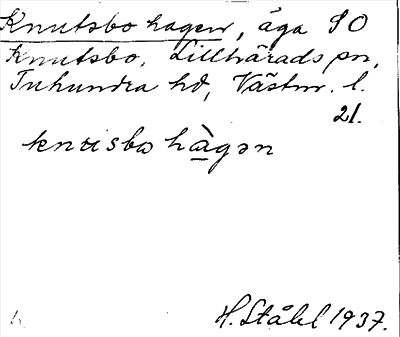 Knutsbo hagen, äga SO
Knutsbo, Lillhärads sn,
Tuhundra hd, Västm. l.
21.
knusbo hàgən
H. Ståhl 1937.